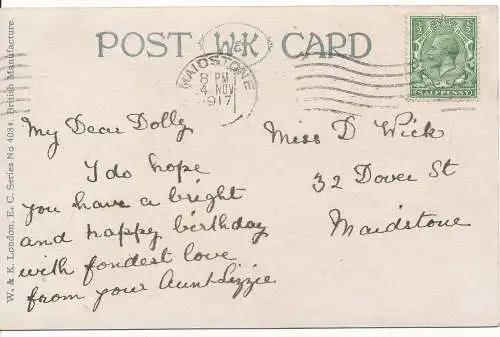 POST W&K CARD
MAIDSTONE
8 PM
4 NOV
1917
HALFPENNY
W. & K. London, E. C. Series No 4084. British Manufacture.
My Dear Dolly
I do hope
you have a bright
and happy birthday
with fondest love
from your Aunt Lizzie
Miss D Wick
32 Dover St
Maidstone